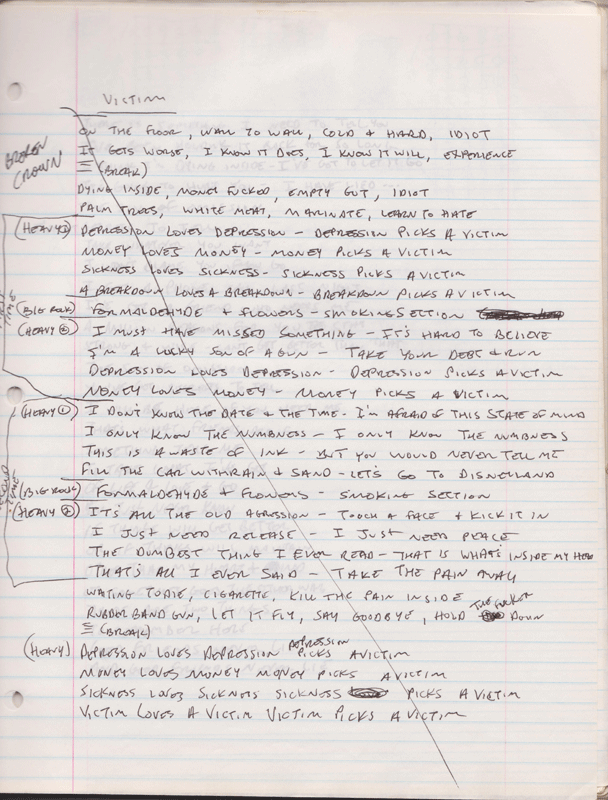 VICTIM
BROKEN CROWN
ON THE FLOOR, WALL TO WALL, COLD & HARD, IDIOT
IT GETS WORSE, I KNOW IT DOES, I KNOW IT WILL, EXPERIENCE
(BREAK)
DYING INSIDE, MONEY FUCKED, EMPTY GUT, IDIOT
PALM TREES, WHITE MEAT, MARINATE, LEARN TO HATE
(HEAVY 1) DEPRESSION LOVES DEPRESSION - DEPRESSION PICKS A VICTIM
MONEY LOVES MONEY - MONEY PICKS A VICTIM
SICKNESS LOVES SICKNESS - SICKNESS PICKS A VICTIM
A BREAKDOWN LOVES A BREAKDOWN - BREAKDOWN PICKS A VICTIM
(BIG ROCK) FORMALDEHYDE & FLOWERS - SMOKING SECTION
(HEAVY 2) I MUST HAVE MISSED SOMETHING - IT'S HARD TO BELIEVE
I'M A LUCKY SON OF A GUN - TAKE YOUR DEBT & RUN
DEPRESSION LOVES DEPRESSION - DEPRESSION PICKS A VICTIM
MONEY LOVES MONEY - MONEY PICKS A VICTIM
(HEAVY 1) I DON'T KNOW THE DATE & THE TIME - I'M AFRAID OF THIS STATE OF MIND
I ONLY KNOW THE NUMBNESS - I ONLY KNOW THE NUMBNESS
THIS IS A WASTE OF INK - BUT YOU WOULD NEVER TELL ME
FILL THE CAR WITH RAIN & SAND - LET'S GO TO DISNEYLAND
SECOND TIME
(BIG ROCK) FORMALDEHYDE & FLOWERS - SMOKING SECTION
(HEAVY 2) IT'S ALL THE OLD AGRESSION - TOUCH A FACE & KICK IT IN
I JUST NEED RELEASE - I JUST NEED PEACE
THE DUMBEST THING I EVER READ - THAT IS WHAT'S INSIDE MY HEAD
THAT'S ALL I EVER SAID - TAKE THE PAIN AWAY
WATING TO DIE, CIGARETTE, KILL THE PAIN INSIDE
RUBBER BAND GUN, LET IT FLY, SAY GOODBYE, HOLD THE FUCKER DOWN
(BREAK)
(HEAVY) DEPRESSION LOVES DEPRESSION DEPRESSION PICKS A VICTIM
MONEY LOVES MONEY MONEY PICKS A VICTIM
SICKNESS LOVES SICKNESS SICKNESS PICKS A VICTIM
VICTIM LOVES A VICTIM VICTIM PICKS A VICTIM